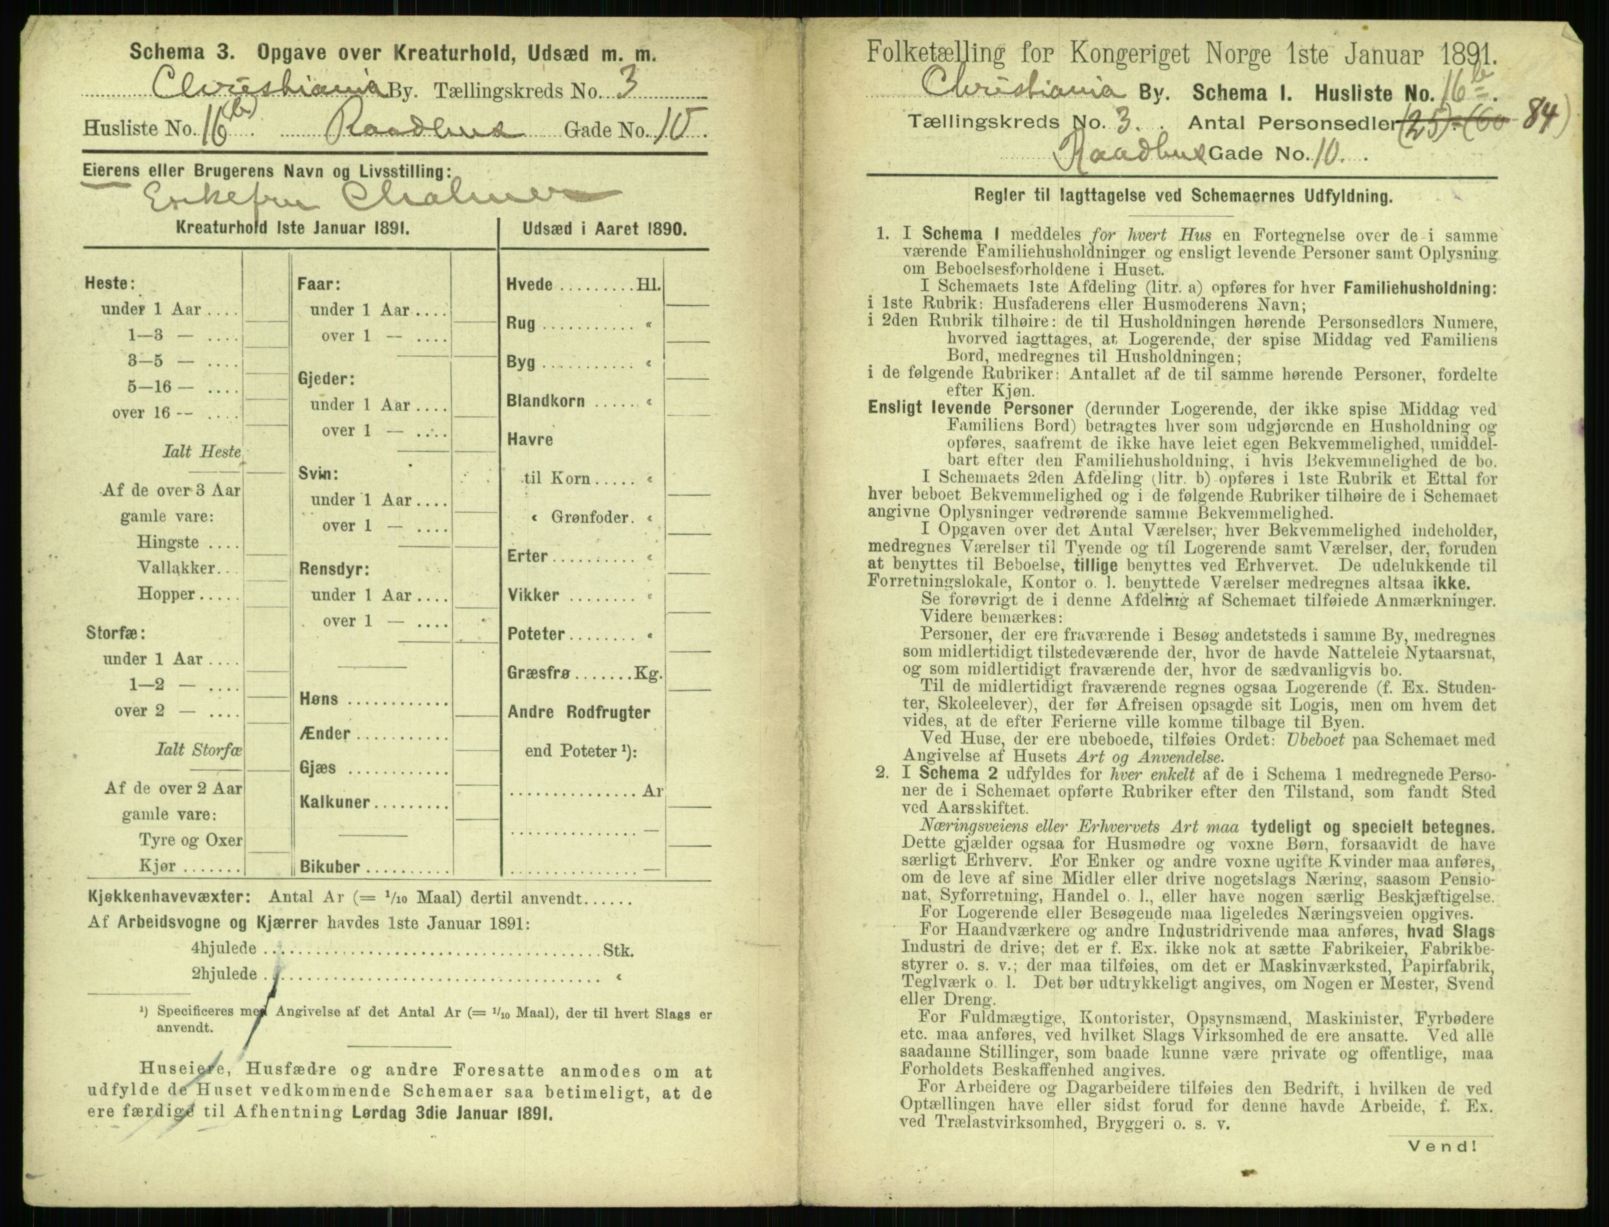 Schema 3. Opgave over Kreaturhold, Udsæd m. m.
Christiania By. Tællingskreds No. 3
Husliste No. 16b. Raadhus Gade No. 10.
Eierens eller Brugerens Navn og Livsstilling:
Enkefru
Kreaturhold 1ste Januar 1891.
Heste:
under 1 Aar ....
1—3 — ....
3—5 — ....
5—16 — ....
over 16 -- ....
Ialt Heste
Af de over 3 Aar
gamle vare:
Hingste ....
Vallakker...
Hopper.....
Storfæ:
under 1 Aar ....
1—2 — ....
over 2 — ....
Ialt Storfæ
Af de over 2 Aar
gamle vare:
Tyre og Oxer
Kjør .......
Faar:
under 1 Aar ....
over 1 — ....
Gjeder:
under 1 Aar ....
over 1 — ....
Svin:
under 1 Aar ....
over 1 — ....
Rensdyr:
under 1 Aar ....
over 1 — ....
Høns ............
Ænder ...........
Gjæs ............
Kalkuner.........
Bikuber ..........
Udsæd i Aaret 1890.
Hvede .........Hl.
Rug ........... «
Byg ........... «
Blandkorn ...... «
Havre
til Korn..... «
« Grønfoder. «
Erter.......... «
Vikker ........ «
Poteter........ «
Græsfrø .......Kg.
Andre Rodfrugter
end Poteter ¹):
............... Ar
............... —
............... —
Kjøkkenhavevæxter: Antal Ar (= 1/10 Maal) dertil anvendt......
Af Arbeidsvogne og Kjærrer havdes 1ste Januar 1891:
4hjulede ........................................Stk.
2hjulede ........................................ «
¹) Specificeres med Angivelse af det Antal Ar (= 1/10 Maal), der til hvert Slags er
anvendt.
Huseiere, Husfædre og andre Foresatte anmodes om at
udfylde de Huset vedkommende Schemaer saa betimeligt, at de
ere færdige til Afhentning Lørdag 3die Januar 1891.
Folketælling for Kongeriget Norge 1ste Januar 1891.
Christiania By. Schema I. Husliste No. 16b.
Tællingskreds No. 3. Antal Personsedler (25) 60 84)
Raadhus Gade No. 10.
Regler til Iagttagelse ved Schemaernes Udfyldning.
1. I Schema 1 meddeles for hvert Hus en Fortegnelse over de i samme
værende Familiehusholdninger og ensligt levende Personer samt Oplysning
om Beboelsesforholdene i Huset.
I Schemaets 1ste Afdeling (litr. a) opføres for hver Familiehusholdning:
i 1ste Rubrik: Husfaderens eller Husmoderens Navn;
i 2den Rubrik tilhøire: de til Husholdningen hørende Personsedlers Numere,
hvorved iagttages, at Logerende, der spise Middag ved Familiens
Bord, medregnes til Husholdningen;
i de følgende Rubriker: Antallet af de til samme hørende Personer, fordelte
efter Kjøn.
Ensligt levende Personer (derunder Logerende, der ikke spise Middag ved
Familiens Bord) betragtes hver som udgjørende en Husholdning og
opføres, saafremt de ikke have leiet egen Bekvemmelighed, umiddel-
bart efter den Familiehusholdning, i hvis Bekvemmelighed de bo.
I Schemaets 2den Afdeling (litr. b) opføres i 1ste Rubrik et Ettal for
hver beboet Bekvemmelighed og i de følgende Rubriker tilhøire de i Schemaet
angivne Oplysninger vedrørende samme Bekvemmelighed.
I Opgaven over det Antal Værelser, hver Bekvemmelighed indeholder,
medregnes Værelser til Tyende og til Logerende samt Værelser, der, foruden
at benyttes til Beboelse, tillige benyttes ved Erhvervet. De udelukkende til
Forretningslokale, Kontor o. l. benyttede Værelser medregnes altsaa ikke.
Se forøvrigt de i denne Afdeling af Schemaet tilføiede Anmærkninger.
Videre bemærkes:
Personer, der ere fraværende i Besøg andetsteds i samme By, medregnes
som midlertidigt tilstedeværende der, hvor de havde Natteleie Nytaarsnat,
og som midlertidigt fraværende der, hvor de sædvanligvis bo.
Til de midlertidigt fraværende regnes ogsaa Logerende (f. Ex. Studen-
ter, Skoleelever), der før Afreisen opsagde sit Logis, men om hvem det
vides, at de efter Ferierne ville komme tilbage til Byen.
Ved Huse, der ere ubeboede, tilføies Ordet: Ubeboet paa Schemaet med
Angivelse af Husets Art og Anvendelse.
2. I Schema 2 udfyldes for hver enkelt af de i Schema 1 medregnede Perso-
ner de i Schemaet opførte Rubriker efter den Tilstand, som fandt Sted
ved Aarsskiftet.
Næringsveiens eller Erhvervets Art maa tydeligt og specielt betegnes.
Dette gjælder ogsaa for Husmødre og voxne Børn, forsaavidt de have
særligt Erhverv. For Enker og andre voxne ugifte Kvinder maa anføres,
om de leve af sine Midler eller drive nogetslags Næring, saasom Pensio-
nat, Syforretning, Handel o. l., eller have nogen særlig Beskjæftigelse.
For Logerende eller Besøgende maa ligeledes Næringsveien opgives.
For Haandværkere og andre Industridrivende maa anføres, hvad Slags
Industri de drive; det er f. Ex. ikke nok at sætte Fabrikeier, Fabrikbe-
styrer o. s. v.; der maa tilføies, om det er Maskinværksted, Papirfabrik,
Teglværk o. l. Det bør udtrykkeligt angives, om Nogen er Mester, Svend
eller Dreng.
For Fuldmægtige, Kontorister, Opsynsmænd, Maskinister, Fyrbødere
etc. maa anføres, ved hvilket Slags Virksomhed de ere ansatte. Ved alle
saadanne Stillinger, som baade kunne være private og offentlige, maa
Forholdets Beskaffenhed angives.
For Arbeidere og Dagarbeidere tilføies den Bedrift, i hvilken de ved
Optællingen have eller sidst forud for denne havde Arbeide, f. Ex.
ved Trælastvirksomhed, Bryggeri o. s. v.
Vend!